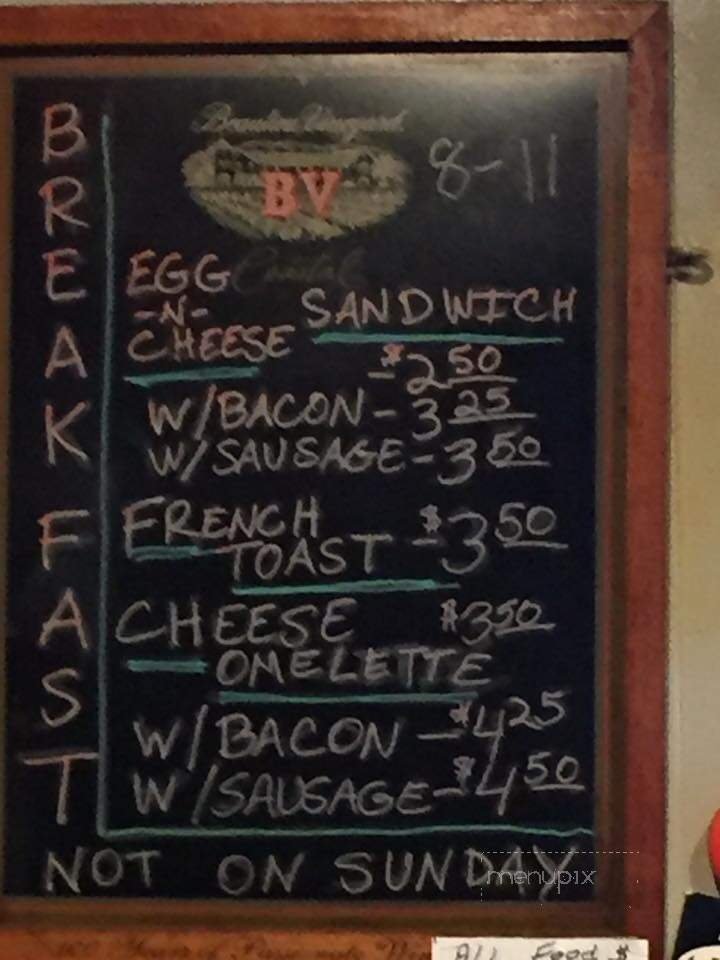 BREAKFAST
BV
8-11
EGG
-N-
CHEESE
SANDWICH
-$2 50
W/BACON - 3 25
W/SAUSAGE - 3 50
FRENCH
TOAST - $3 50
CHEESE $3 50
OMELETTE
W/BACON - $4 25
W/SAUSAGE - $4 50
NOT ON SUNDAY
menupix
ALL Food $